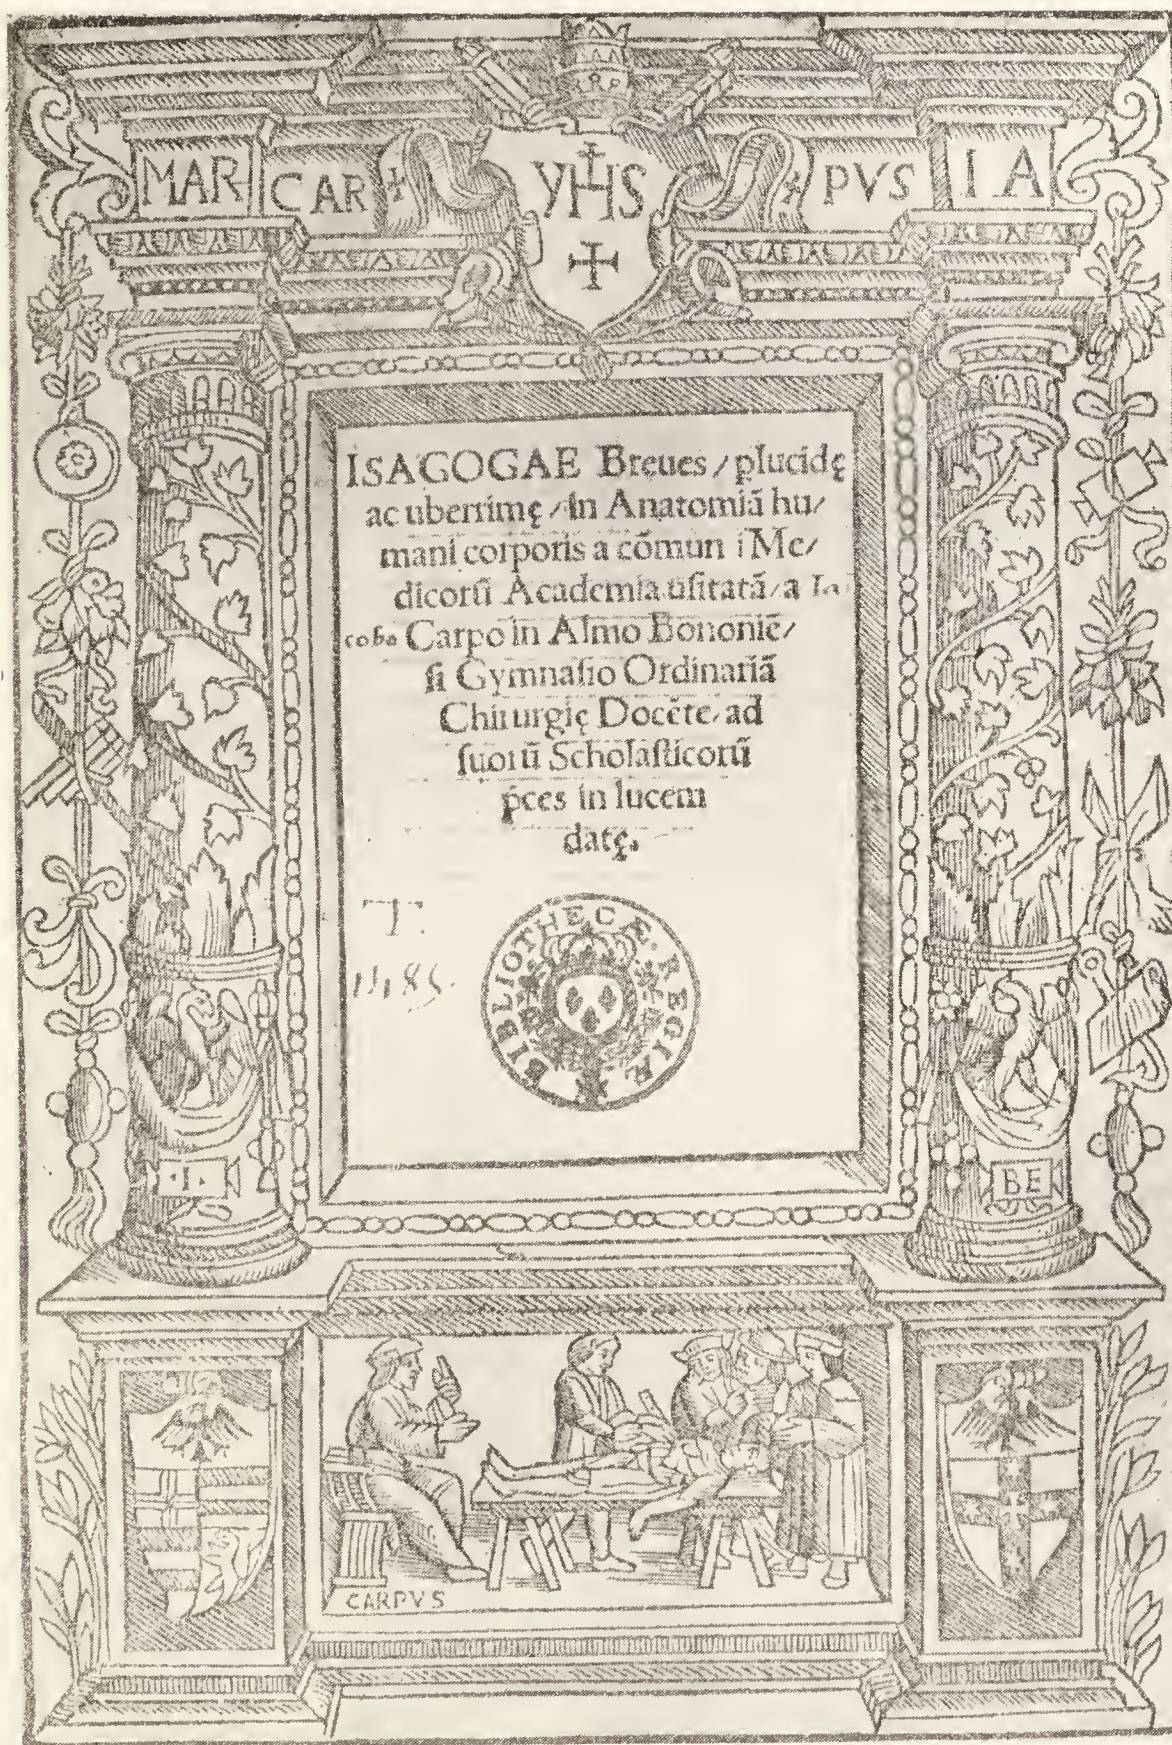 MAR CAR YHS PVS I A
ISAGOGAE Breues / ꝑlucidę
ac uberrimę / In Anatomiã hu/
mani corporis a cõmun i Me/
dicorũ Academia usitatã / a Ia
cobo Carpo in Almo Bononiẽ/
si Gymnasio Ordinariã
Chirurgię Docẽte, ad
suorũ Scholasticorũ
p̃ces in lucem
datę.
T.
BIBLIOTHECÆ REGIÆ
.I. BE
CARPVS